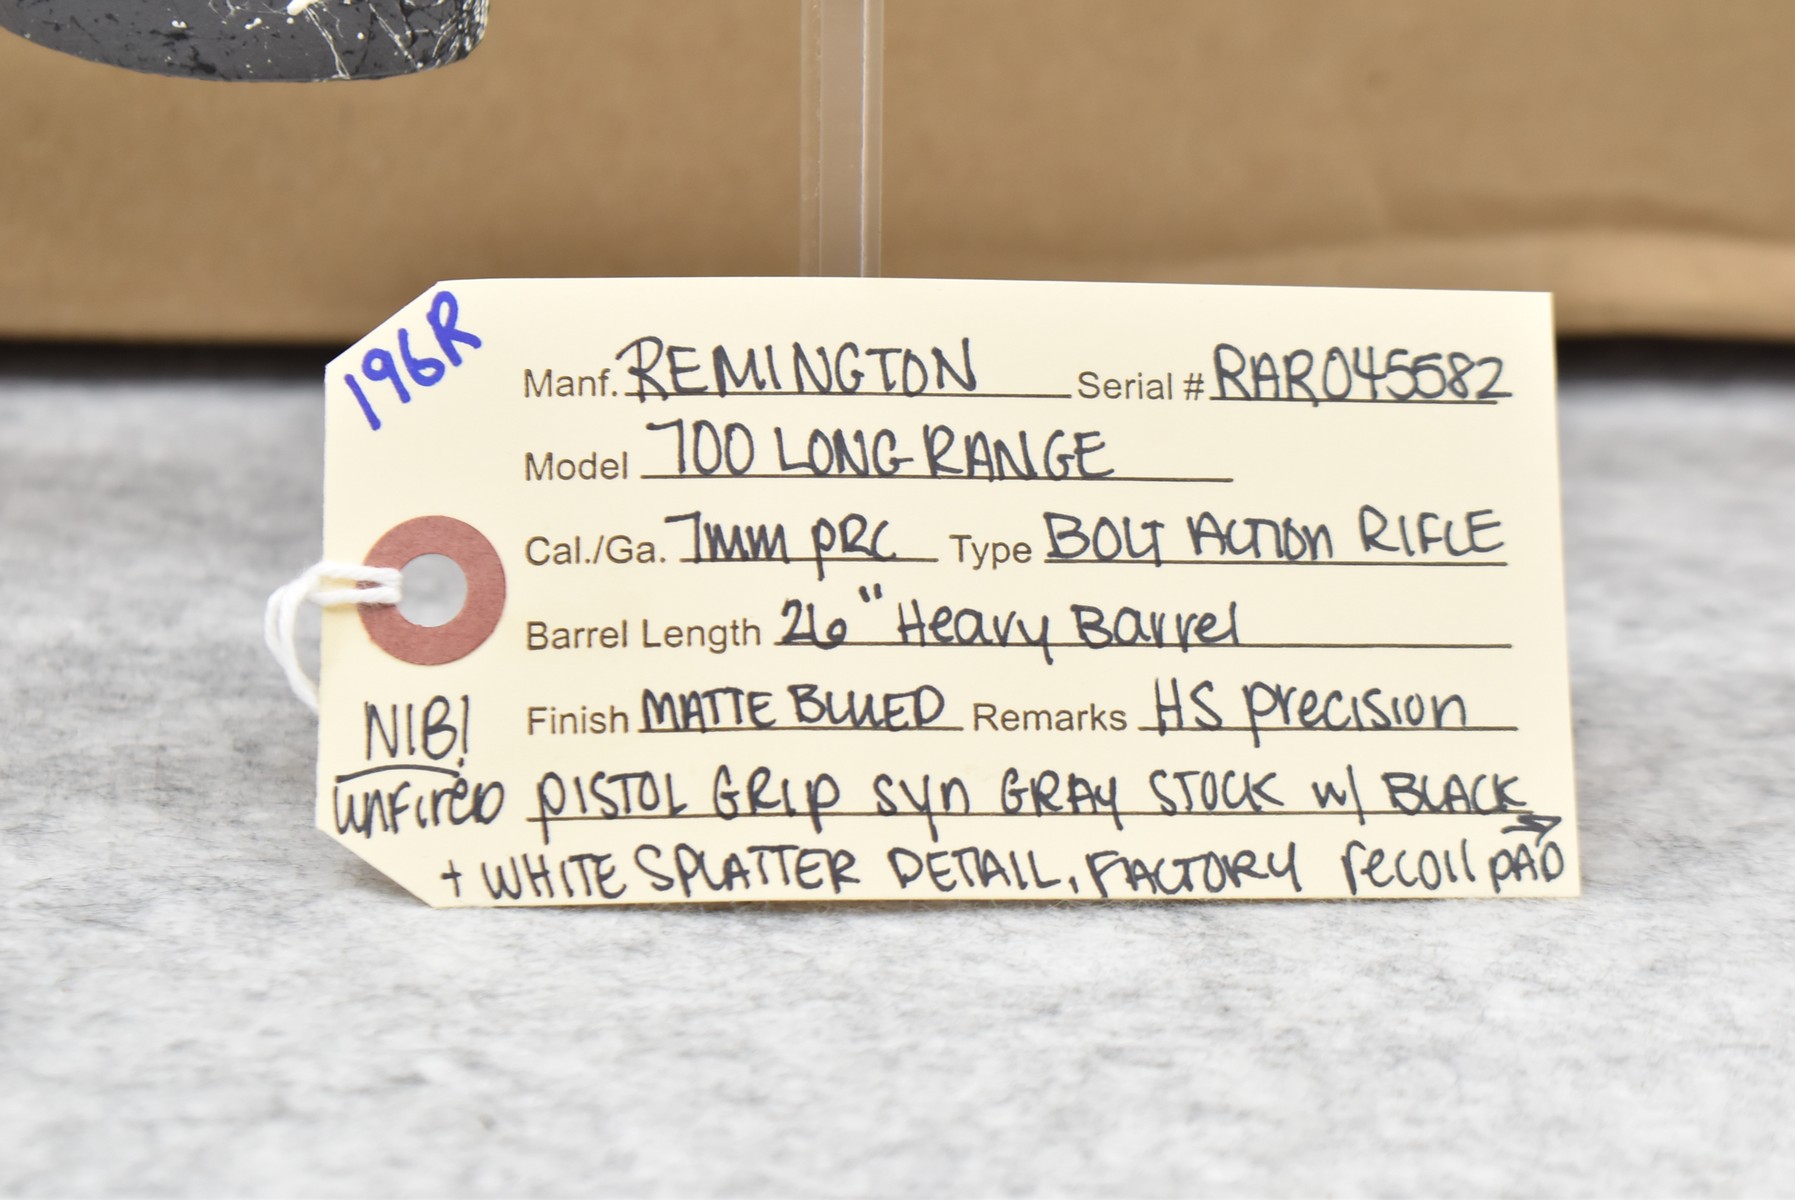 196R
Manf. REMINGTON Serial # RAR045582
Model 700 LONG RANGE
Cal./Ga. 7mm PRC Type BOLT ACTION RIFLE
Barrel Length 26" Heavy Barrel
Finish MATTE BLUED Remarks HS precision
NIB!
unfired
PISTOL GRIP syn GRAY STOCK w/ BLACK →
+ WHITE SPLATTER DETAIL, FACTORY recoil PAD